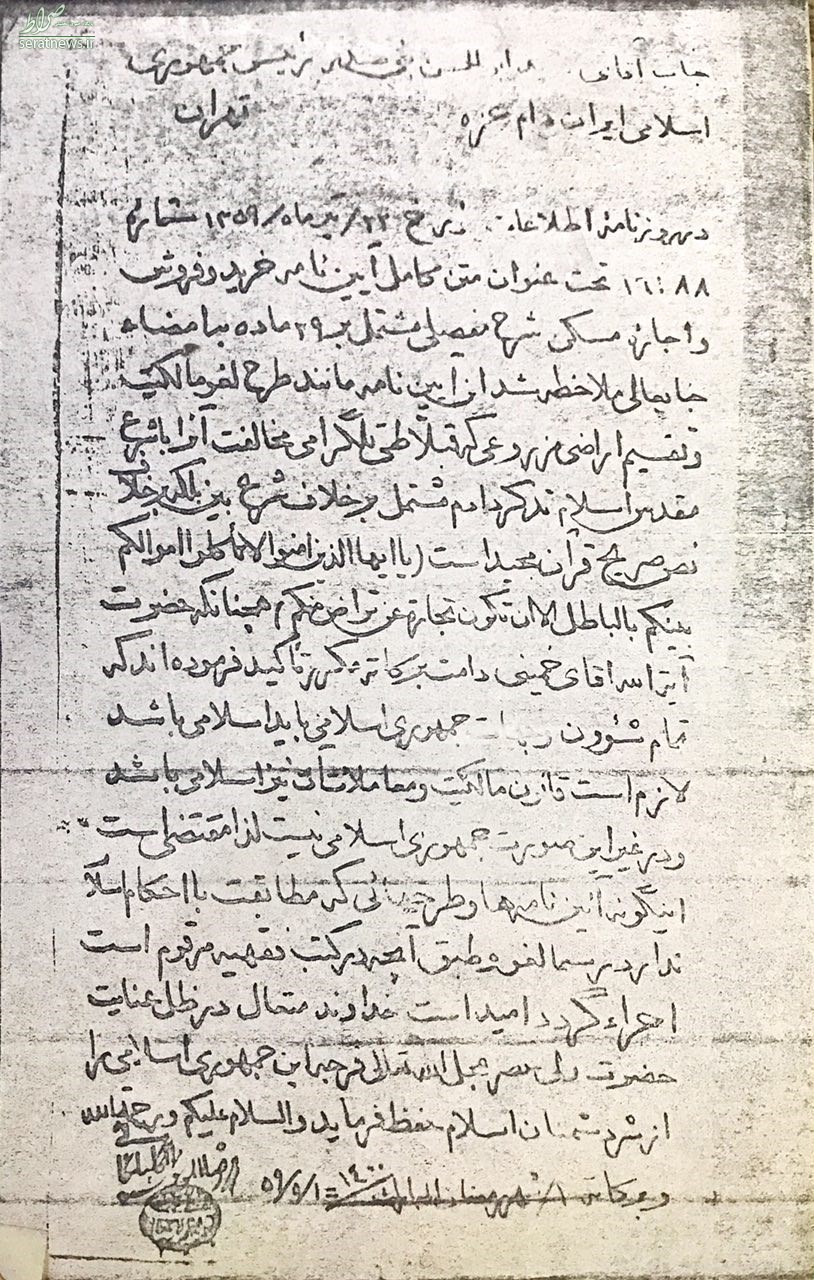 صراط
seratnews.ir
جناب آقای ابوالحسن بنی صدر رئیس جمهوری
اسلامی ایران دام عزه تهران
در روزنامهٔ اطلاعات مورخ ۲۳/تیرماه/۱۳۵۹ شمارهٔ
۱۶۱۸۸ تحت عنوان متن کامل آیین نامه خرید و فروش
و اجاره مسکن شرح مفصلی مشتمل بر ۲۹ ماده بامضاء
جنابعالی ملاحظه شد این آیین نامه مانند طرح لغو مالکیت
و تقسیم اراضی مزروعی که قبلاً طی تلگرامی مخالفت آنرا با شرع
مقدس اسلام تذکر دادم مشتمل بر خلاف شرع بین بلکه بر خلاف
نص صریح قرآن مجید است (یا ایها الذین امنوا لا تأکلوا اموالکم
بینکم بالباطل الا ان تکون تجارة عن تراض منکم) همچنانکه حضرت
آیة الله آقای خمینی دامت برکاته مکرر تأکید فرموده اند که
تمام شئوون جمهوری اسلامی باید اسلامی باشد
لازم است قانون مالکیت و معاملاتشان نیز اسلامی باشد
و در غیر این صورت جمهوری اسلامی نیست لذا مقتضی است
اینگونه آئین نامه ها و طرحهائی که مطابقت با احکام اسلام
ندارد رسما لغو و طبق آنچه در کتب فقهیه مرقوم است
اجراء گردد امید است خداوند متعال در ظل عنایت
حضرت ولی عصر عجل الله تعالی فرجه این جمهوری اسلامی را
از شر دشمنان اسلام حفظ فرماید والسلام علیکم و رحمة الله
و برکاته ۱/ شهر رمضان المبارک ۱۴۰۰